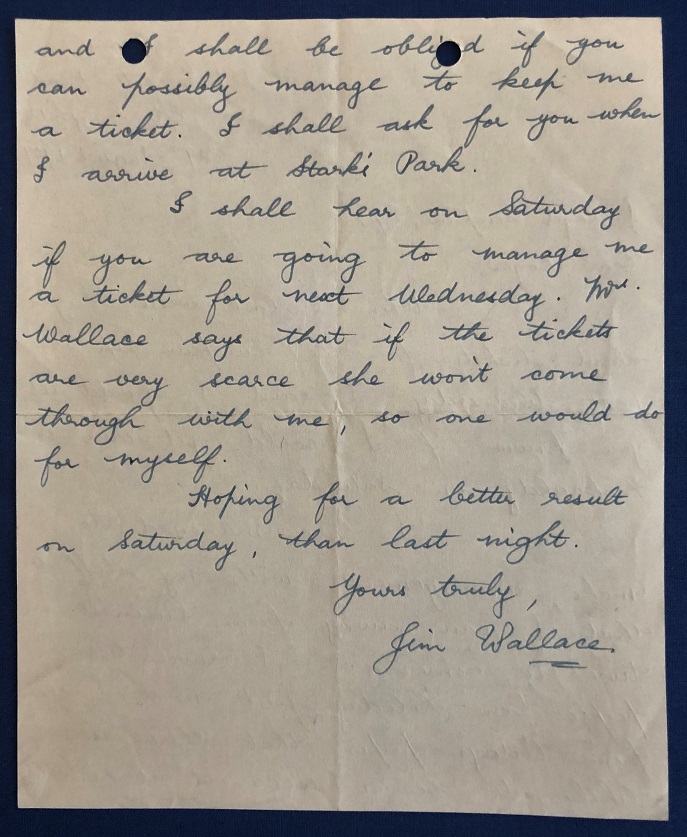 and I shall be obliged if you
can possibly manage to keep me
a ticket. I shall ask for you when
I arrive at Stark's Park.
I shall hear on Saturday
if you are going to manage me
a ticket for next Wednesday. Mrs.
Wallace says that if the tickets
are very scarce she won't come
through with me, so one would do
for myself.
Hoping for a better result
on Saturday, than last night.
Yours truly,
Jim Wallace.